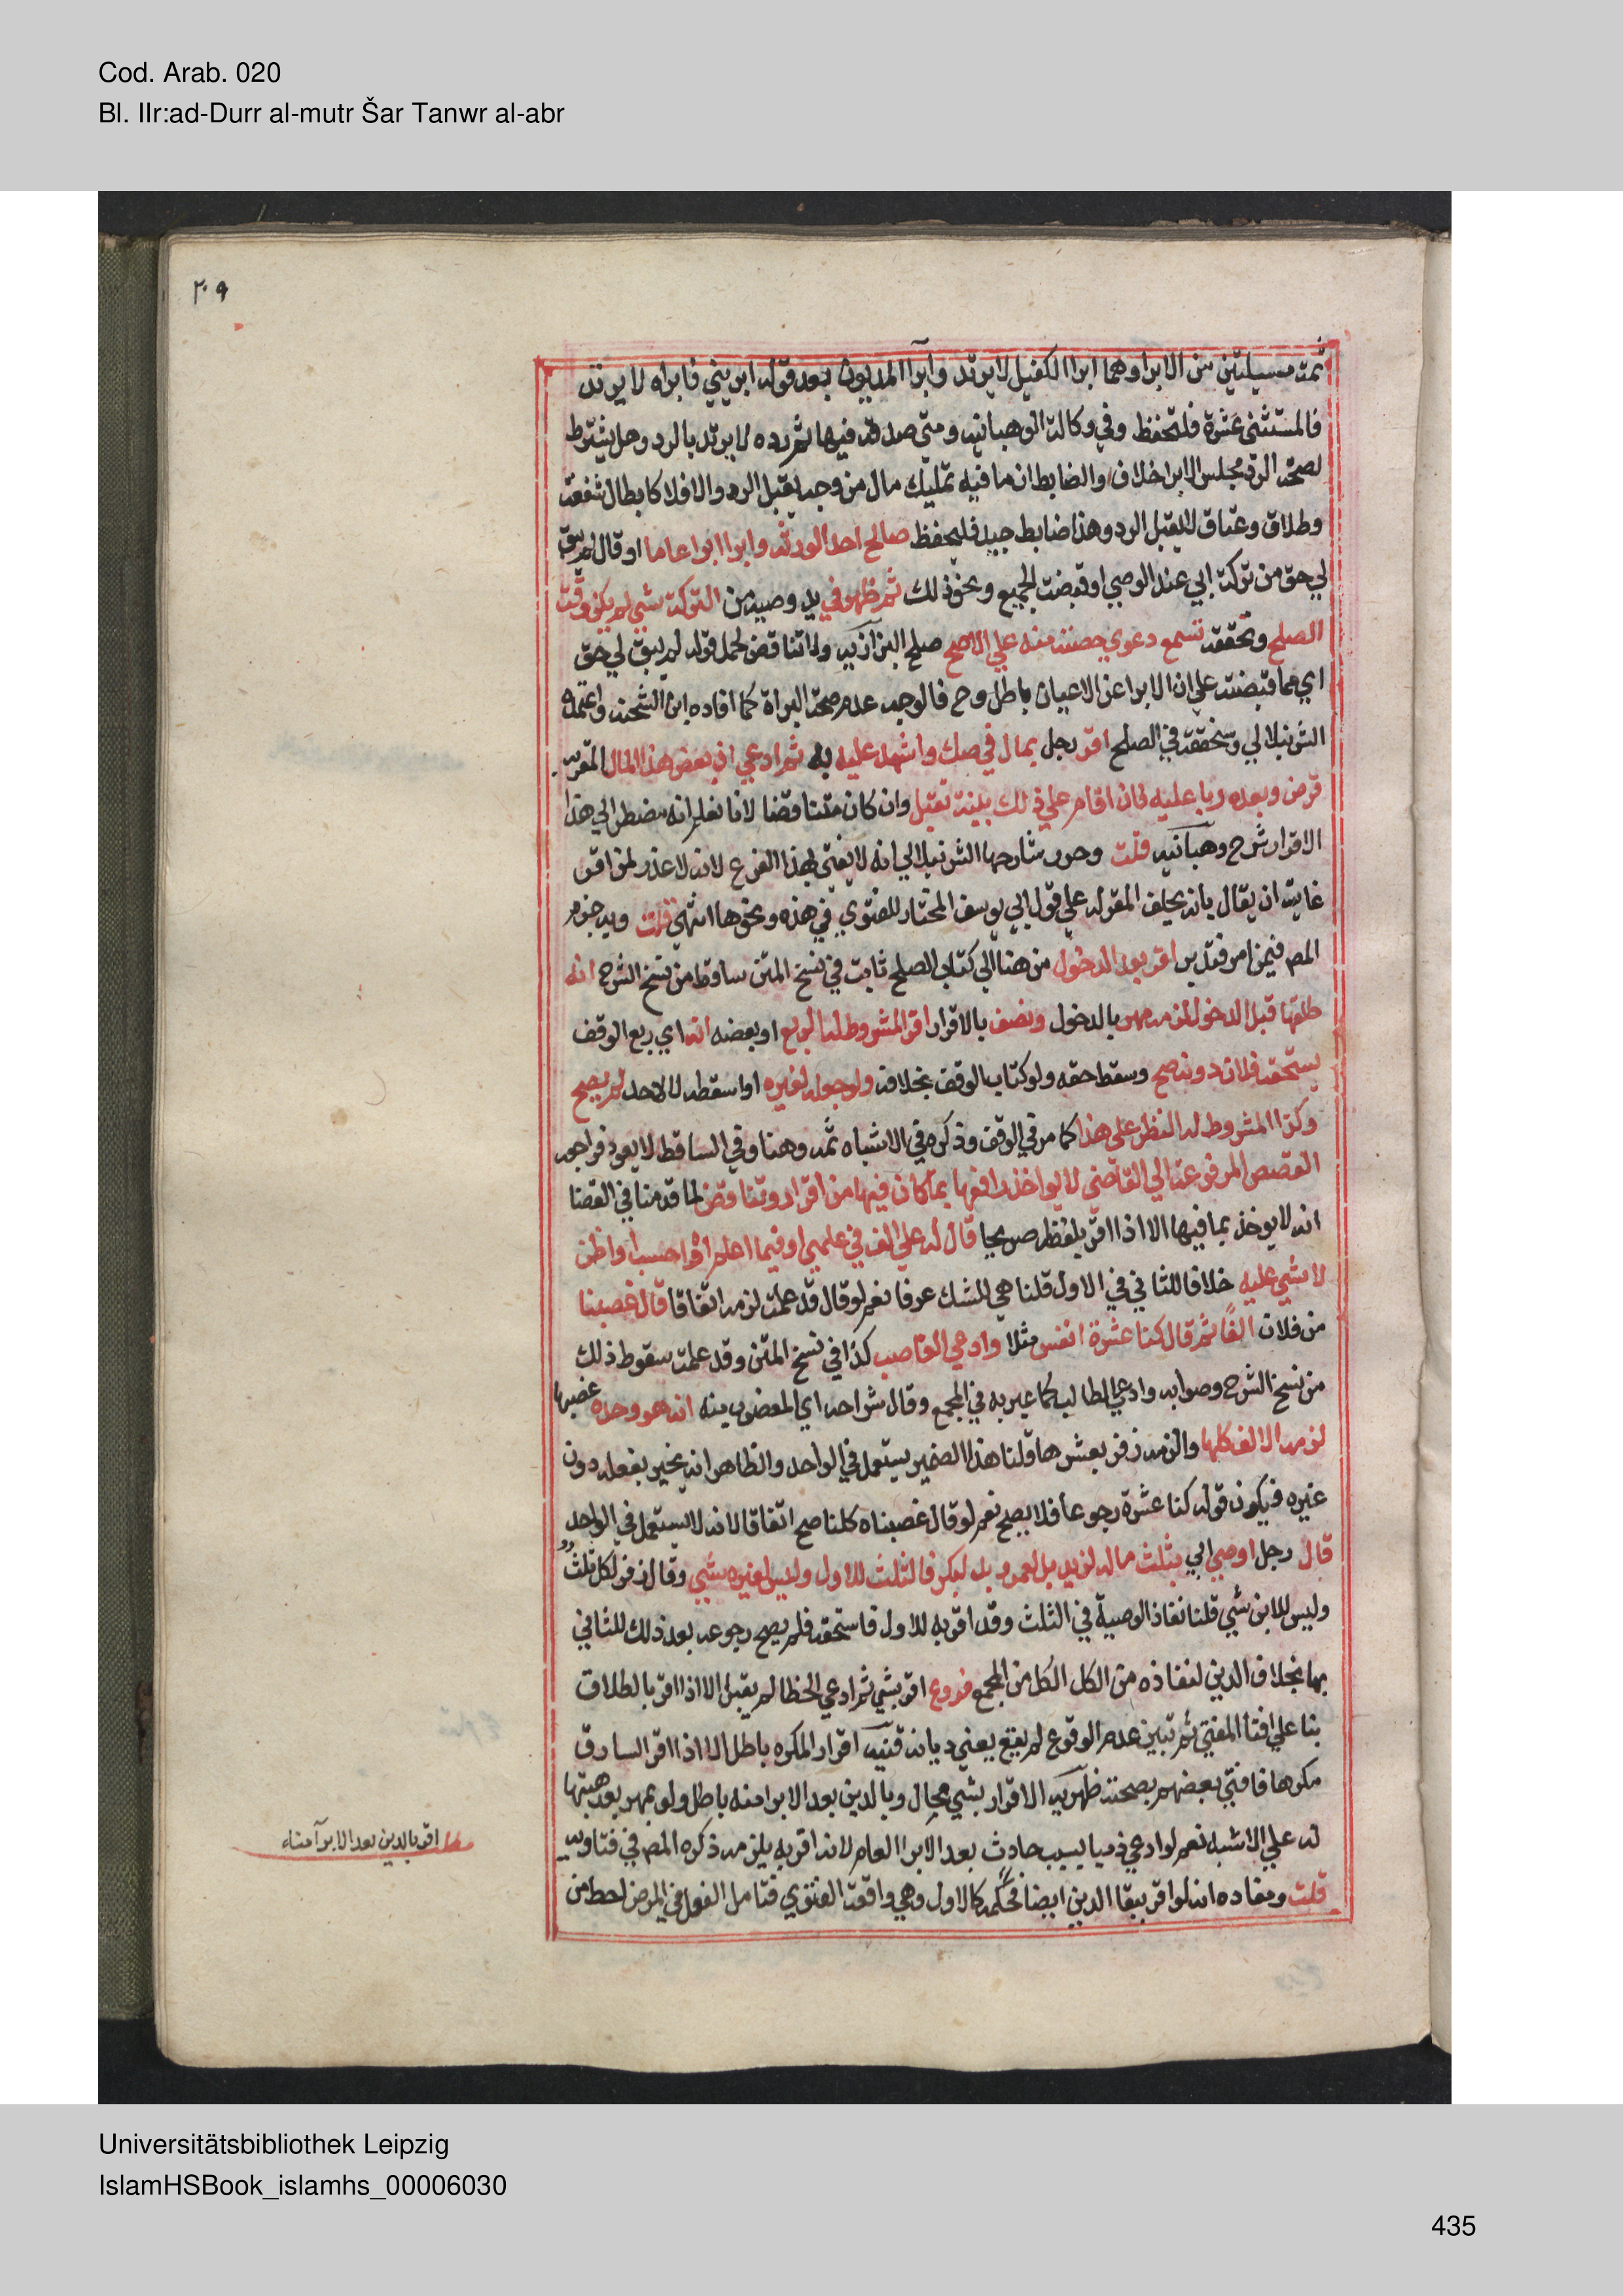 Cod. Arab. 020
Bl. IIr:ad-Durr al-mutr Šar Tanwr al-abr
٢٠٩
ثمة مسيلتين من الابرا وهما ابرا الكفيل لا يرتد وابرا المديون بعد قوله ابريني فابراه لا يرتد
فالمستثنى عشرة فلتحفظ وفي وكالة الوهبانيه ومتى صدقه فيها ثم رده لا يرتد بالرد وهل يشترط
لصحة الرد مجلس الابرا خلاف والضابط ان ما فيه تمليك مال من وجه يقبل الرد والا فلا كابطال شفعة
وطلاق وعتاق لا يقبل الرد وهذا ضابط جيد فليحفظ صالح احد الورثة وابرا ابرا عاما او قال لم يبق
لي حق من تركة ابي عند الوصي او قبضت الجميع ونحو ذلك ثم ظهر في يد وصيه من التركة شي لم يكن وقت
الصلح وتحققه تسمع دعوي حصته منه علي الاصح صلح البزازيه ولا تناقض لحمل قوله لم يبق لي حق
اي مما قبضته علي ان الابرا عن الاعيان باطل وح فالوجه عدم صحة البراة كما افاده ابن الشحنه واعتمده
الشرنبلالي وسنحققه في الصلح اقر رجل بمال في صك واشهد عليه به ثم ادعي ان بعض هذا المال المقر به
قرض وبعضه ربا عليه فان اقام علي ذلك بينة تقبل وان كان متناقضا لانا نعلم انه مضطر الي هذا
الاقرار شرح وهبانيه قلت وحرر شارحها الشرنبلالي انه لا يفتى بهذا الفرع لانه لا عذر لمن اقر
غايته ان يقال بانه يحلف المقر له علي قول ابي يوسف المختار للفتوي في هذه ونحوها انتهى قلت وبه جزم
المص فيمن امر فتدبر اقر بعد الدخول من هنا الي كتاب الصلح ثابت في نسخ المتن ساقط من نسخ الشرح انه
طلقها قبل الدخول لزمه مهر بالدخول ونصف بالاقرار اقر المشروط له الريع او بعضه انه اي ريع الوقف
يستحقه فلان دونه صح وسقط حقه ولو كتاب الوقف بخلافه ولو جعله لغيره او اسقطه لا لاحد لم يصح
وكذا المشروط له النظر على هذا كما مر في الوقف وذكره في الاشباه ثمه وهنا وفي الساقط لا يعود فراجعه
القصص المرفوعة الي القاضي لا يواخذ رافعها بما كان فيها من اقرار وتناقض لما قدمنا في القضا
انه لا يوخذ بما فيها الا اذا اقر بلفظه صريحا قال له علي الف في علمي او فيما اعلم او احسب او اظن
لا شي عليه خلافا للثاني في الاول قلنا هي للشك عرفا نعم لو قال قد علمت لزمه اتفاقا قال غصبنا
من فلان الفا ثم قال كنا عشرة انفس مثلا وادعي الغاصب كذا في نسخ المتن وقد علمت سقوط ذلك
من نسخ الشرح وصوابه وادعي الطالب كما عبر به في المجمع وقال شراحه اي المغصوب منه انه هو وحده غصبها
لزمه الالف كلها والزمه زفر بعشرها قلنا هذا الضمير يستعمل في الواحد والظاهر انه يخبر بفعله دون
غيره فيكون قوله كنا عشرة رجوعا فلا يصح نعم لو قال غصبناه كلنا صح اتفاقا لانه لا يستعمل في الواحد
قال رجل اوصي ابي بثلث ماله لزيد بل لعمرو بل لبكر فالثلث للاول وليس لغيره شي وقال زفر لكل ثلثه
وليس للابن شي قلنا نفاذ الوصية في الثلث وقد اقر به للاول فاستحقه فلم يصح رجوعه بعد ذلك للثاني
بها بخلاف الدين لنفاذه من الكل الكل من المجمع فروع اقر بشي ثم ادعي الخطا لم يقبل الا اذا اقر بالطلاق
بنا علي افتا المفتي ثم تبين عدم الوقوع لم يقع يعني ديانة قنيه اقرار المكره باطل الا اذا اقر السارق
مكرها فافتى بعضهم بصحته ظهيريه الاقرار بشي محال وبالدين بعد الابرا منه باطل ولو بمهر بعد هبتها
له علي الاشبه نعم لو ادعي دينا بسبب حادث بعد الابرا العام لانه اقر به يلزمه ذكره المص في فتاويه
قلت ومفاده انه لو اقر ببقا الدين ايضا فحكمه كالاول وهي واقعة الفتوي فتامل الفعل في المرض احط من
مطلب اقر بالدين بعد الابرآ منه
Universitätsbibliothek Leipzig
IslamHSBook_islamhs_00006030
435